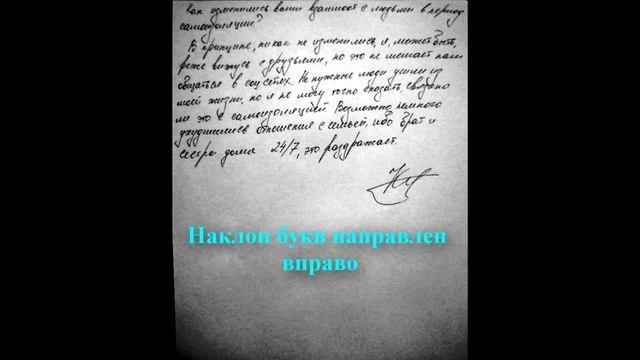 Как изменились ваши взаимоот. с людьми в период
самоизоляции?
В принципе, никак не изменились, я, может быть,
реже вижусь с друзьями, но это не мешает нам
общаться в соцсетях. Не нужные люди ушли из
моей жизни, но я не могу точно сказать, связано
ли это с самоизоляцией. Возможно, немного
ухудшились отношения с семьёй, ибо брат и
сестра дома 24/7, это раздражает.
Наклон букв направлен
вправо